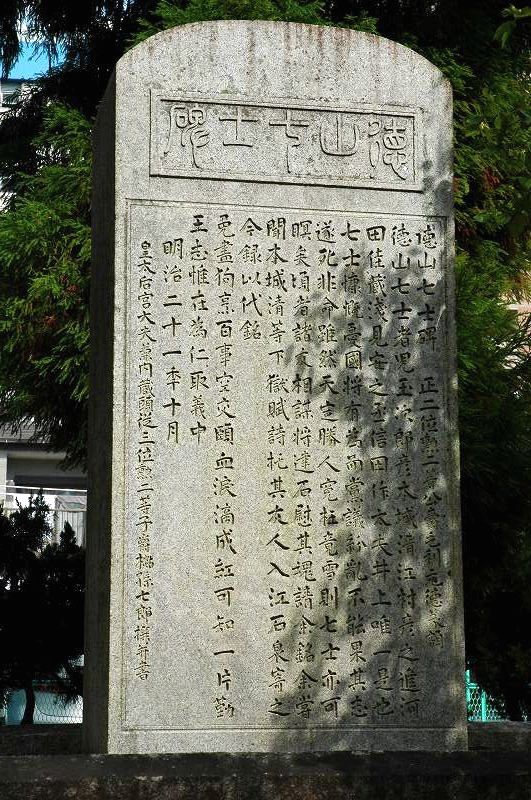 徳山七士碑
徳山七士碑 正二位勲一等公爵毛利元徳篆額
徳山七士者児玉次郎彦本城清江村彦之進河
田佳蔵浅見安之丞信田作太夫井上唯一是也
七士慷慨憂國将有為而黨議紛亂不能果其志
遂死非命雖然天定勝人寃枉竟雪則七士亦可
瞑矣頃者諸友相謀将建石慰其魂請余銘余嘗
聞本城清等下獄賦詩托其友人入江石泉寄之
今録以代銘
兎盡狗烹百事空交頤血涙滴成紅可知一片勤
王志惟在為仁取義中
明治二十一季十月
皇太后宮大夫兼内蔵頭従三位勲二等子爵杉孫七郎撰并書